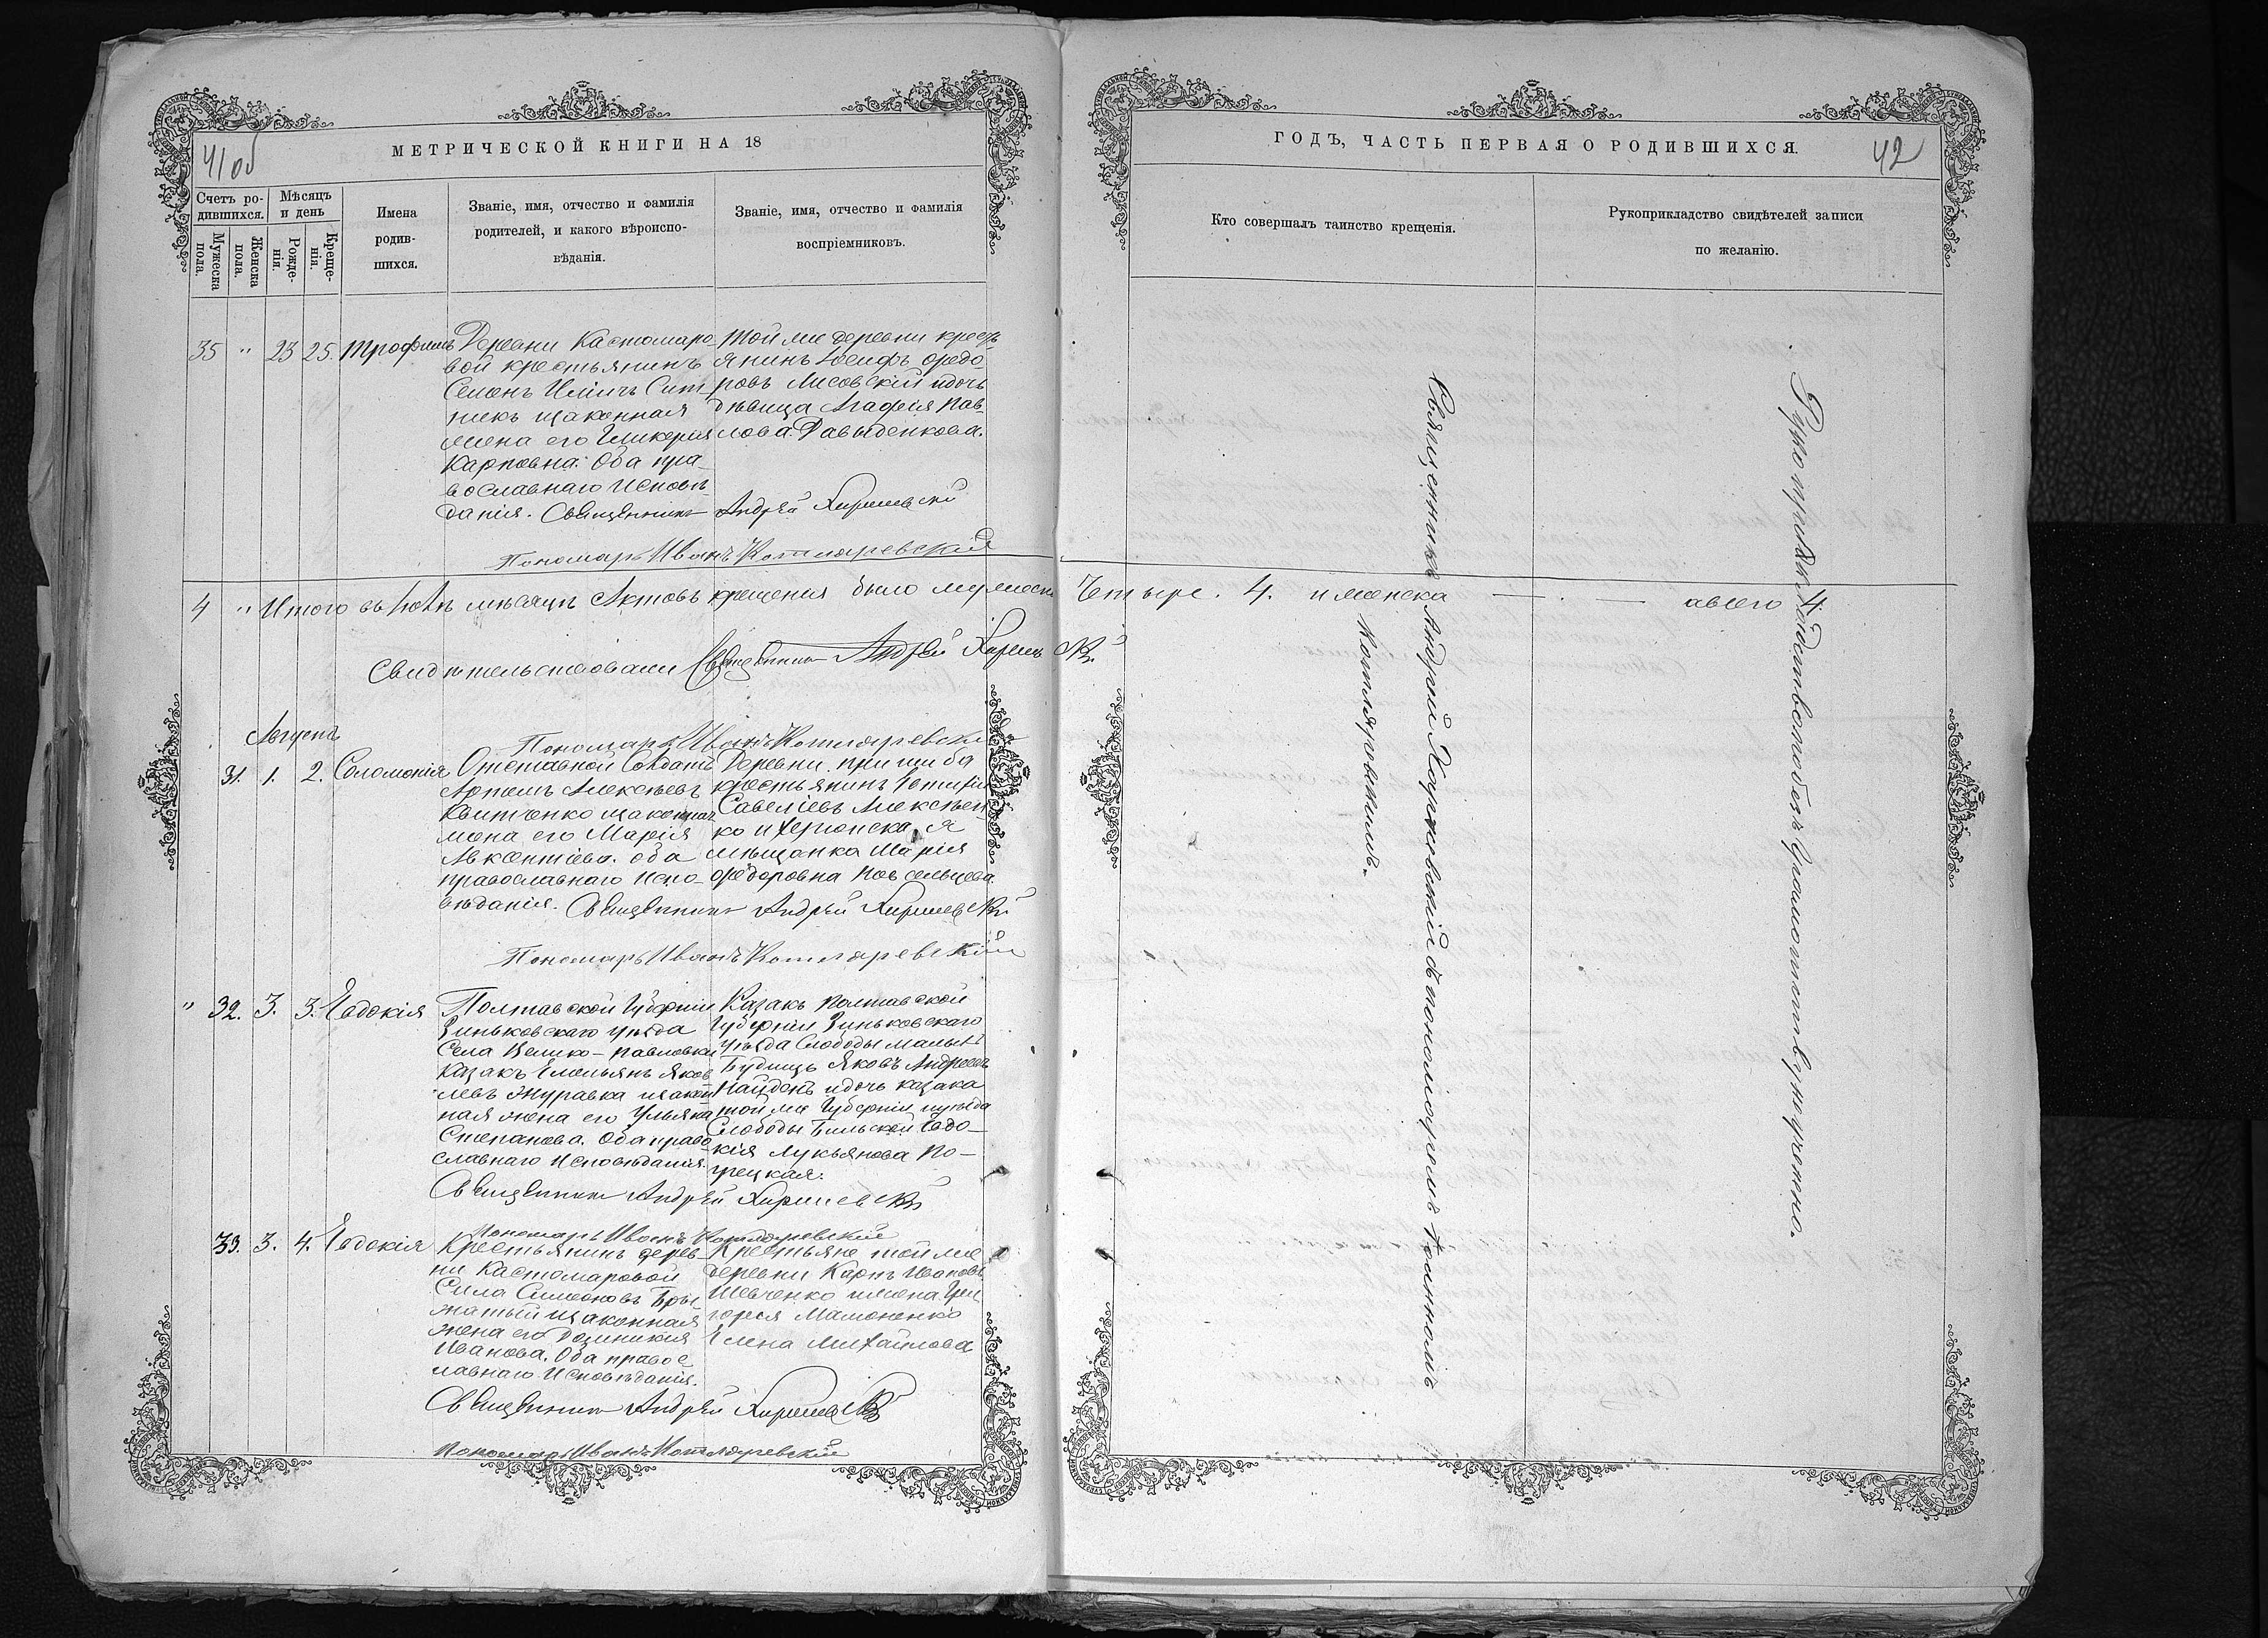 41 об
МЕТРИЧЕСКОЙ КНИГИ НА 18
Счетъ ро-
дившихся.
Мужеска
пола.
Женска
пола.
Мѣсяцъ
и день
Рожде-
нія.
Креще-
нія.
Имена
родив-
шихся.
Званіе, имя, отчество и фамилія
родителей, и какого вѣроиспо-
вѣданія.
Званіе, имя, отчество и фамилія
воспріемниковъ.
35 " 23 25. Трофимъ
Деревни Кастомаро
вой крестьянинъ
Семенъ Ильичъ Сит
никъ изаконная
жена его Гликерія
Карповна. Оба пра
вославнаго исповѣ
данія. Священникъ Андрей
Той же деревни крест
янинъ Іосифъ Федо
ровъ Лисовскій идочь
дѣвица Агафія Пав
лова Давыденкова.
Пономарь Иванъ Котляревскій
4 " Итого въ Іюлѣ мѣсяцѣ Актовъ крещенія было мужеска
Свидѣтельствовали Священникъ Андрей
Пономарь Иванъ Котляревскій
Августъ
31. 1. 2. Соломонія
Отставной Солдатъ
Артемъ Алексѣевъ
Квитченко изаконная
жена его Марія
Авксентіева. оба
православнаго испо-
вѣданія. Священникъ Андрей
Деревни
крестьянинъ
Савеліевъ Алексѣен
ко и Херсонска я
мѣщанка Марія
Федоровна Новсельцева.
Пономарь Иванъ Котляревскій
" 32. 3. 3. Евдокія
Полтавской Губерніи
Зиньковскаго уѣзда
Села Велико-Павловки
казакъ Емельянъ Яков
левъ Журавка изакон
ная жена его Ульяна
Степанова. Оба право
славнаго Исповѣданія.
Казакъ Полтавской
Губерніи Зиньковскаго
уѣзда Слободы Малыхъ
Будищъ Яковъ Андреевъ
Найденъ идочь казака
той же Губерніи иуѣзда
Слободы Бильской Евдо-
кія Лукьянова По-
грецкая.
Священникъ Андрей
Пономарь Иванъ Котляревскій
33. 3. 4. Евдокія
Крестьянинъ дерев-
ни Кастомаровой
Сила Симеоновъ
изаконная
жена его Домникія
Иванова. Оба правос
лавнаго Исповѣданія.
Крестьяне той же
деревни Карпъ Ивановъ
Шевченко ижена Гри
горія Мамоненко
Елена Михайлова
Священникъ Андрей
Пономарь Иванъ Котляревскій
ГОДЪ, ЧАСТЬ ПЕРВАЯ О РОДИВШИХСЯ.
42
Кто совершалъ таинство крещенія.
Рукоприкладство свидѣтелей записи
по желанію.
Четыре. 4. и женска — . — авсего 4.
Священникъ Андрей съ пономаремъ Іоанномъ
Котляревскимъ.
Рукоприкладство по безъграмотству неучинено.